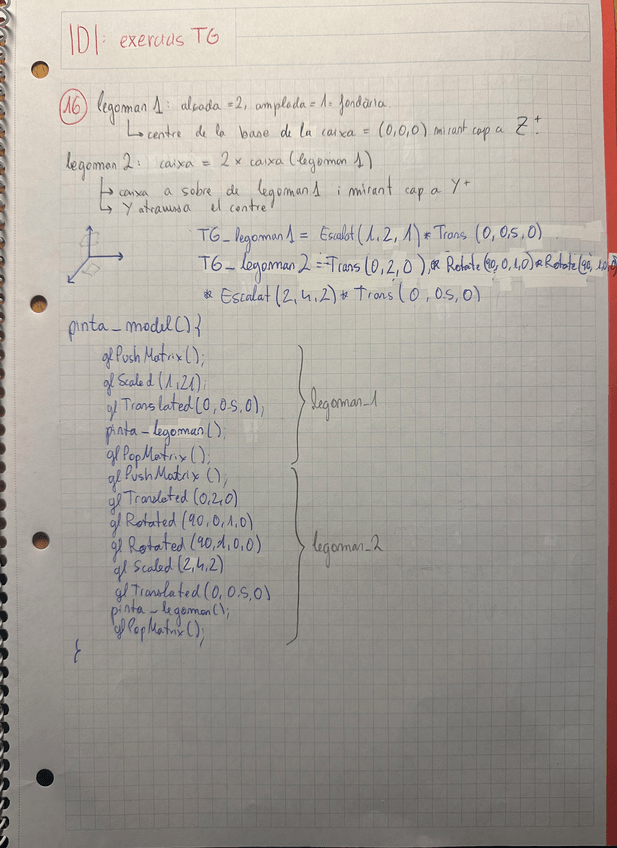 IDI: exercicis TG
16 legoman 1: alçada = 2, amplada = 1 = fondària.
↳ centre de la base de la caixa = (0,0,0) mirant cap a Z+.
legoman 2: caixa = 2 x caixa (legoman 1)
↳ caixa a sobre de legoman 1 i mirant cap a Y+
↳ Y atravessa el centre
TG_legoman 1 = Escalat (1, 2, 1) * Trans (0, 0.5, 0)
TG_legoman 2 = Trans (0, 2, 0) * Rotate (90, 0, 1, 0) * Rotate (90, 1, 0, 0)
* Escalat (2, 4, 2) * Trans (0, 0.5, 0)
pinta_model() {
glPushMatrix();
glScaled (1, 21);
glTranslated (0, 0.5, 0);
pinta_legoman();
glPopMatrix();
legoman_1
glPushMatrix();
glTranslated (0, 2, 0)
glRotated (90, 0, 1, 0)
glRotated (90, 1, 0, 0)
glScaled (2, 4, 2)
glTranslated (0, 0.5, 0)
pinta_legoman();
glPopMatrix();
legoman_2
}